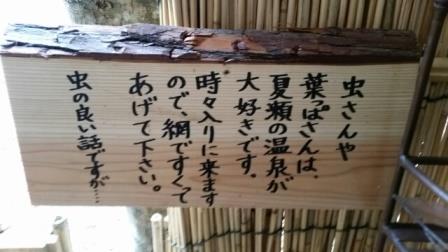 虫さんや
葉っぱさんは、
夏瀬の温泉が
大好きです。
時々入りに来ます
ので、網ですくって
あげて下さい。
虫の良い話ですが…